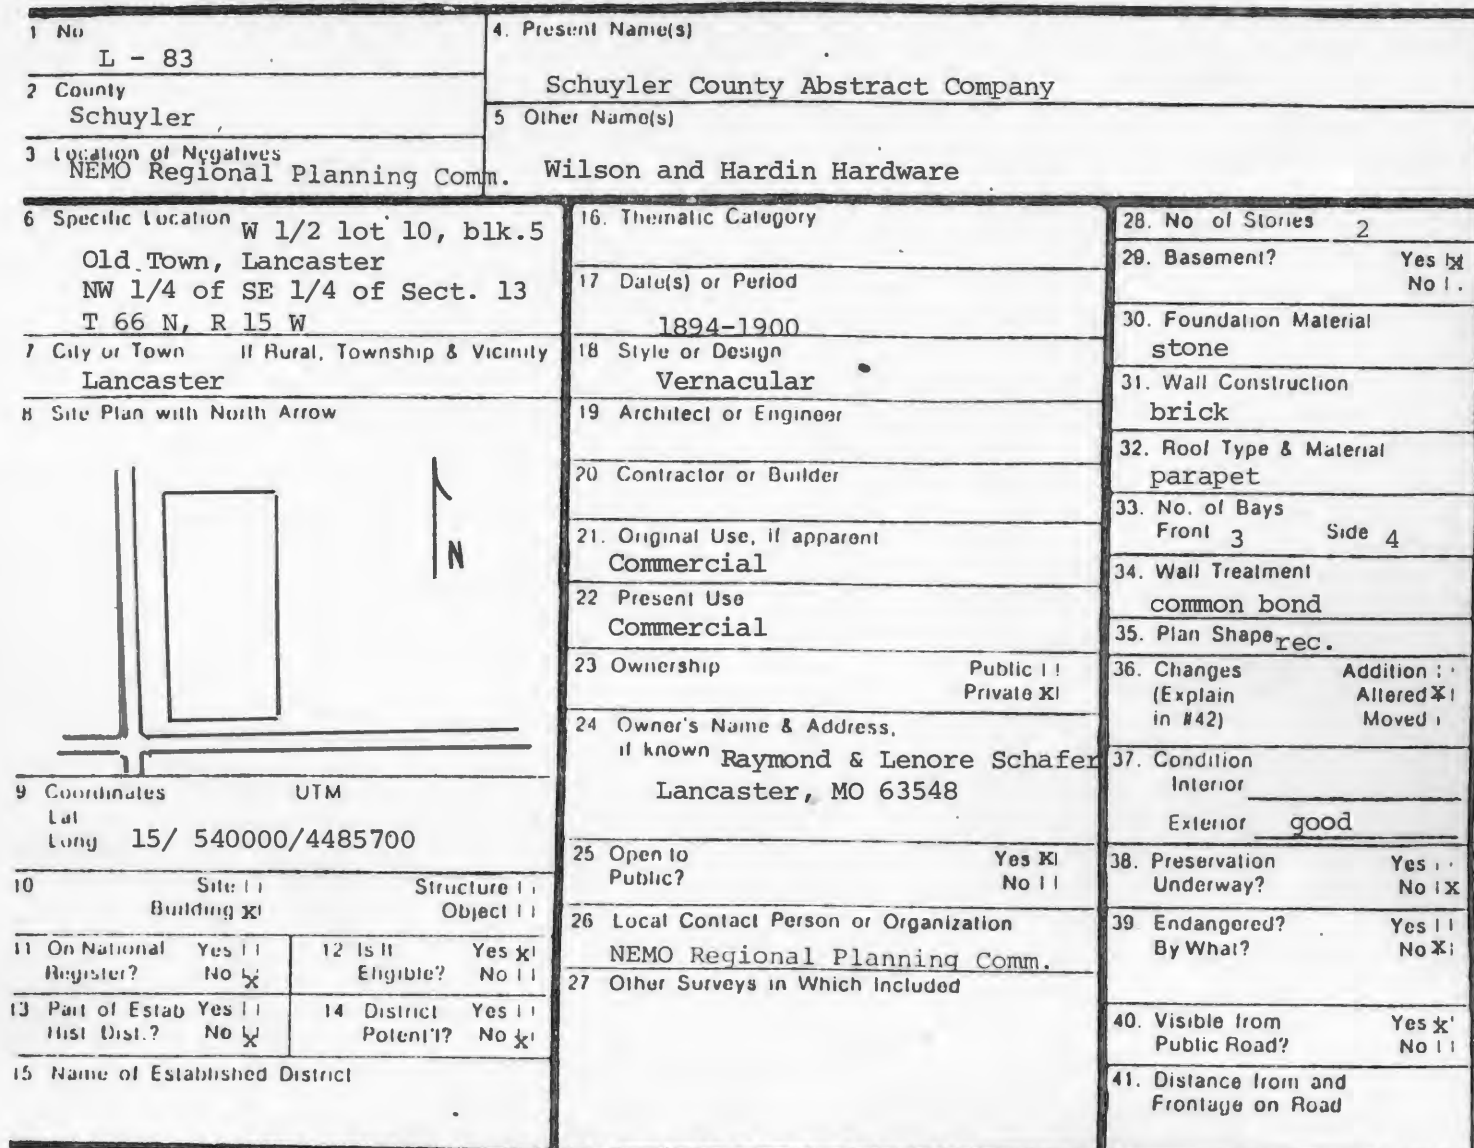 1 No
L - 83
2 County
Schuyler
3 Location of Negatives
NEMO Regional Planning Comm.
4. Present Name(s)
Schuyler County Abstract Company
5 Other Name(s)
Wilson and Hardin Hardware
6 Specific Location W 1/2 lot 10, blk.5
Old Town, Lancaster
NW 1/4 of SE 1/4 of Sect. 13
T 66 N, R 15 W
7 City or Town If Rural, Township & Vicinity
Lancaster
8 Site Plan with North Arrow
N
9 Coordinates UTM
Lat
Long 15/ 540000/4485700
10 Site Structure
Building X Object
11 On National Yes
Register? No X
12 Is It Yes X
Eligible? No
13 Part of Estab Yes
Hist Dist.? No X
14 District Yes
Potent'l? No X
15 Name of Established District
16. Thematic Category
17 Date(s) or Period
1894-1900
18 Style or Design
Vernacular
19 Architect or Engineer
20 Contractor or Builder
21. Original Use, if apparent
Commercial
22 Present Use
Commercial
23 Ownership Public
Private X
24 Owner's Name & Address,
if known Raymond & Lenore Schafer
Lancaster, MO 63548
25 Open to Yes X
Public? No
26 Local Contact Person or Organization
NEMO Regional Planning Comm.
27 Other Surveys in Which Included
28. No of Stories 2
29. Basement? Yes X
No
30. Foundation Material
stone
31. Wall Construction
brick
32. Roof Type & Material
parapet
33. No. of Bays
Front 3 Side 4
34. Wall Treatment
common bond
35. Plan Shape rec.
36. Changes Addition
(Explain Altered X
in #42) Moved
37. Condition
Interior
Exterior good
38. Preservation Yes
Underway? No X
39 Endangered? Yes
By What? No X
40. Visible from Yes X
Public Road? No
41. Distance from and
Frontage on Road